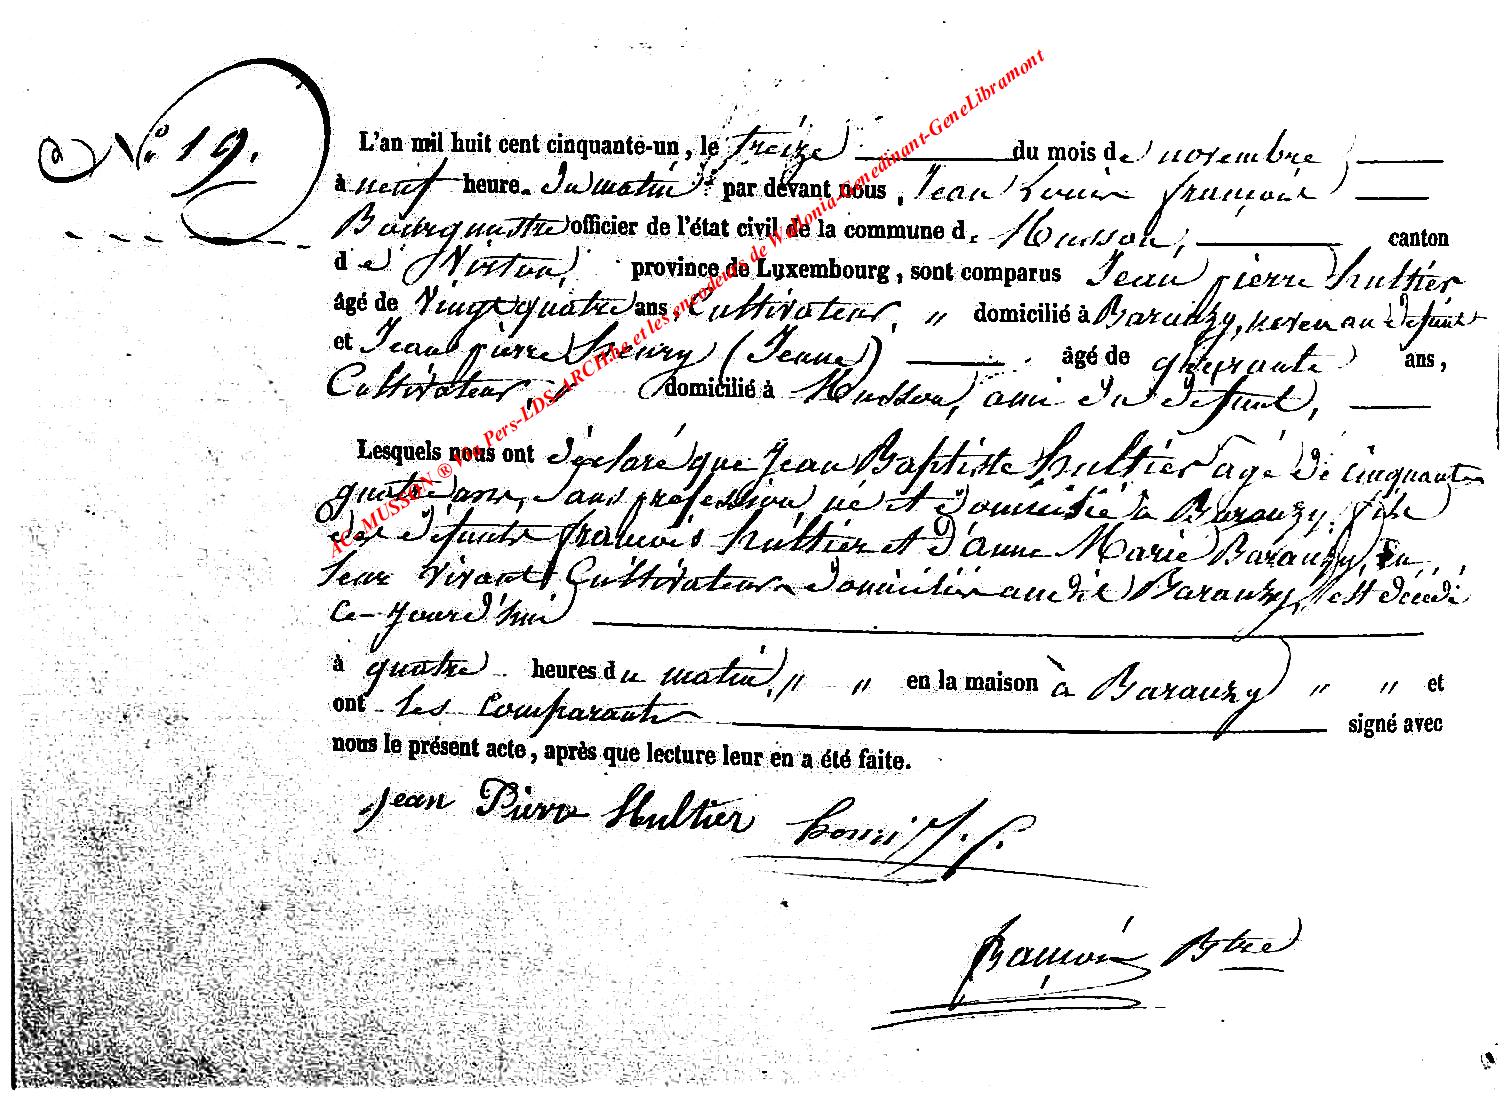 N° 19.
L'an mil huit cent cinquante-un, le treize du mois de novembre,
à neuf heures du matin par devant nous, Jean Louis françois
Bourgmestre officier de l'état civil de la commune de Musson, canton
de Virton, province de Luxembourg, sont comparus Jean pierre hultier
âgé de Vingt quatre ans, Cultivateur, " domicilié à Baranzy, neveu au défunt
et Jean pierre henry (Jeune) âgé de quarante ans,
Cultivateur, " domicilié à Musson, ami du défunt,
Lesquels nous ont déclaré que Jean Baptiste hultier agé de cinquante
quatre ans, sans profession, né et domicilié à Baranzy, fils
des défunts francois hultier et d'anne Marie Baranzy, en
leur vivant Cultivateurs domiciliés au dit Baranzy, est décédé
ce-jourd'hui
à quatre heures du matin, " " en la maison à Baranzy " " et
ont les comparants signé avec
nous le présent acte, après que lecture leur en a été faite.
Jean Pierre Hultier henri J. P.
françois Btre
AC-MUSSON ® Via Pers-LDS-ARCH.be et les encodeurs de Wallonia-Genedinant-GeneLibramont